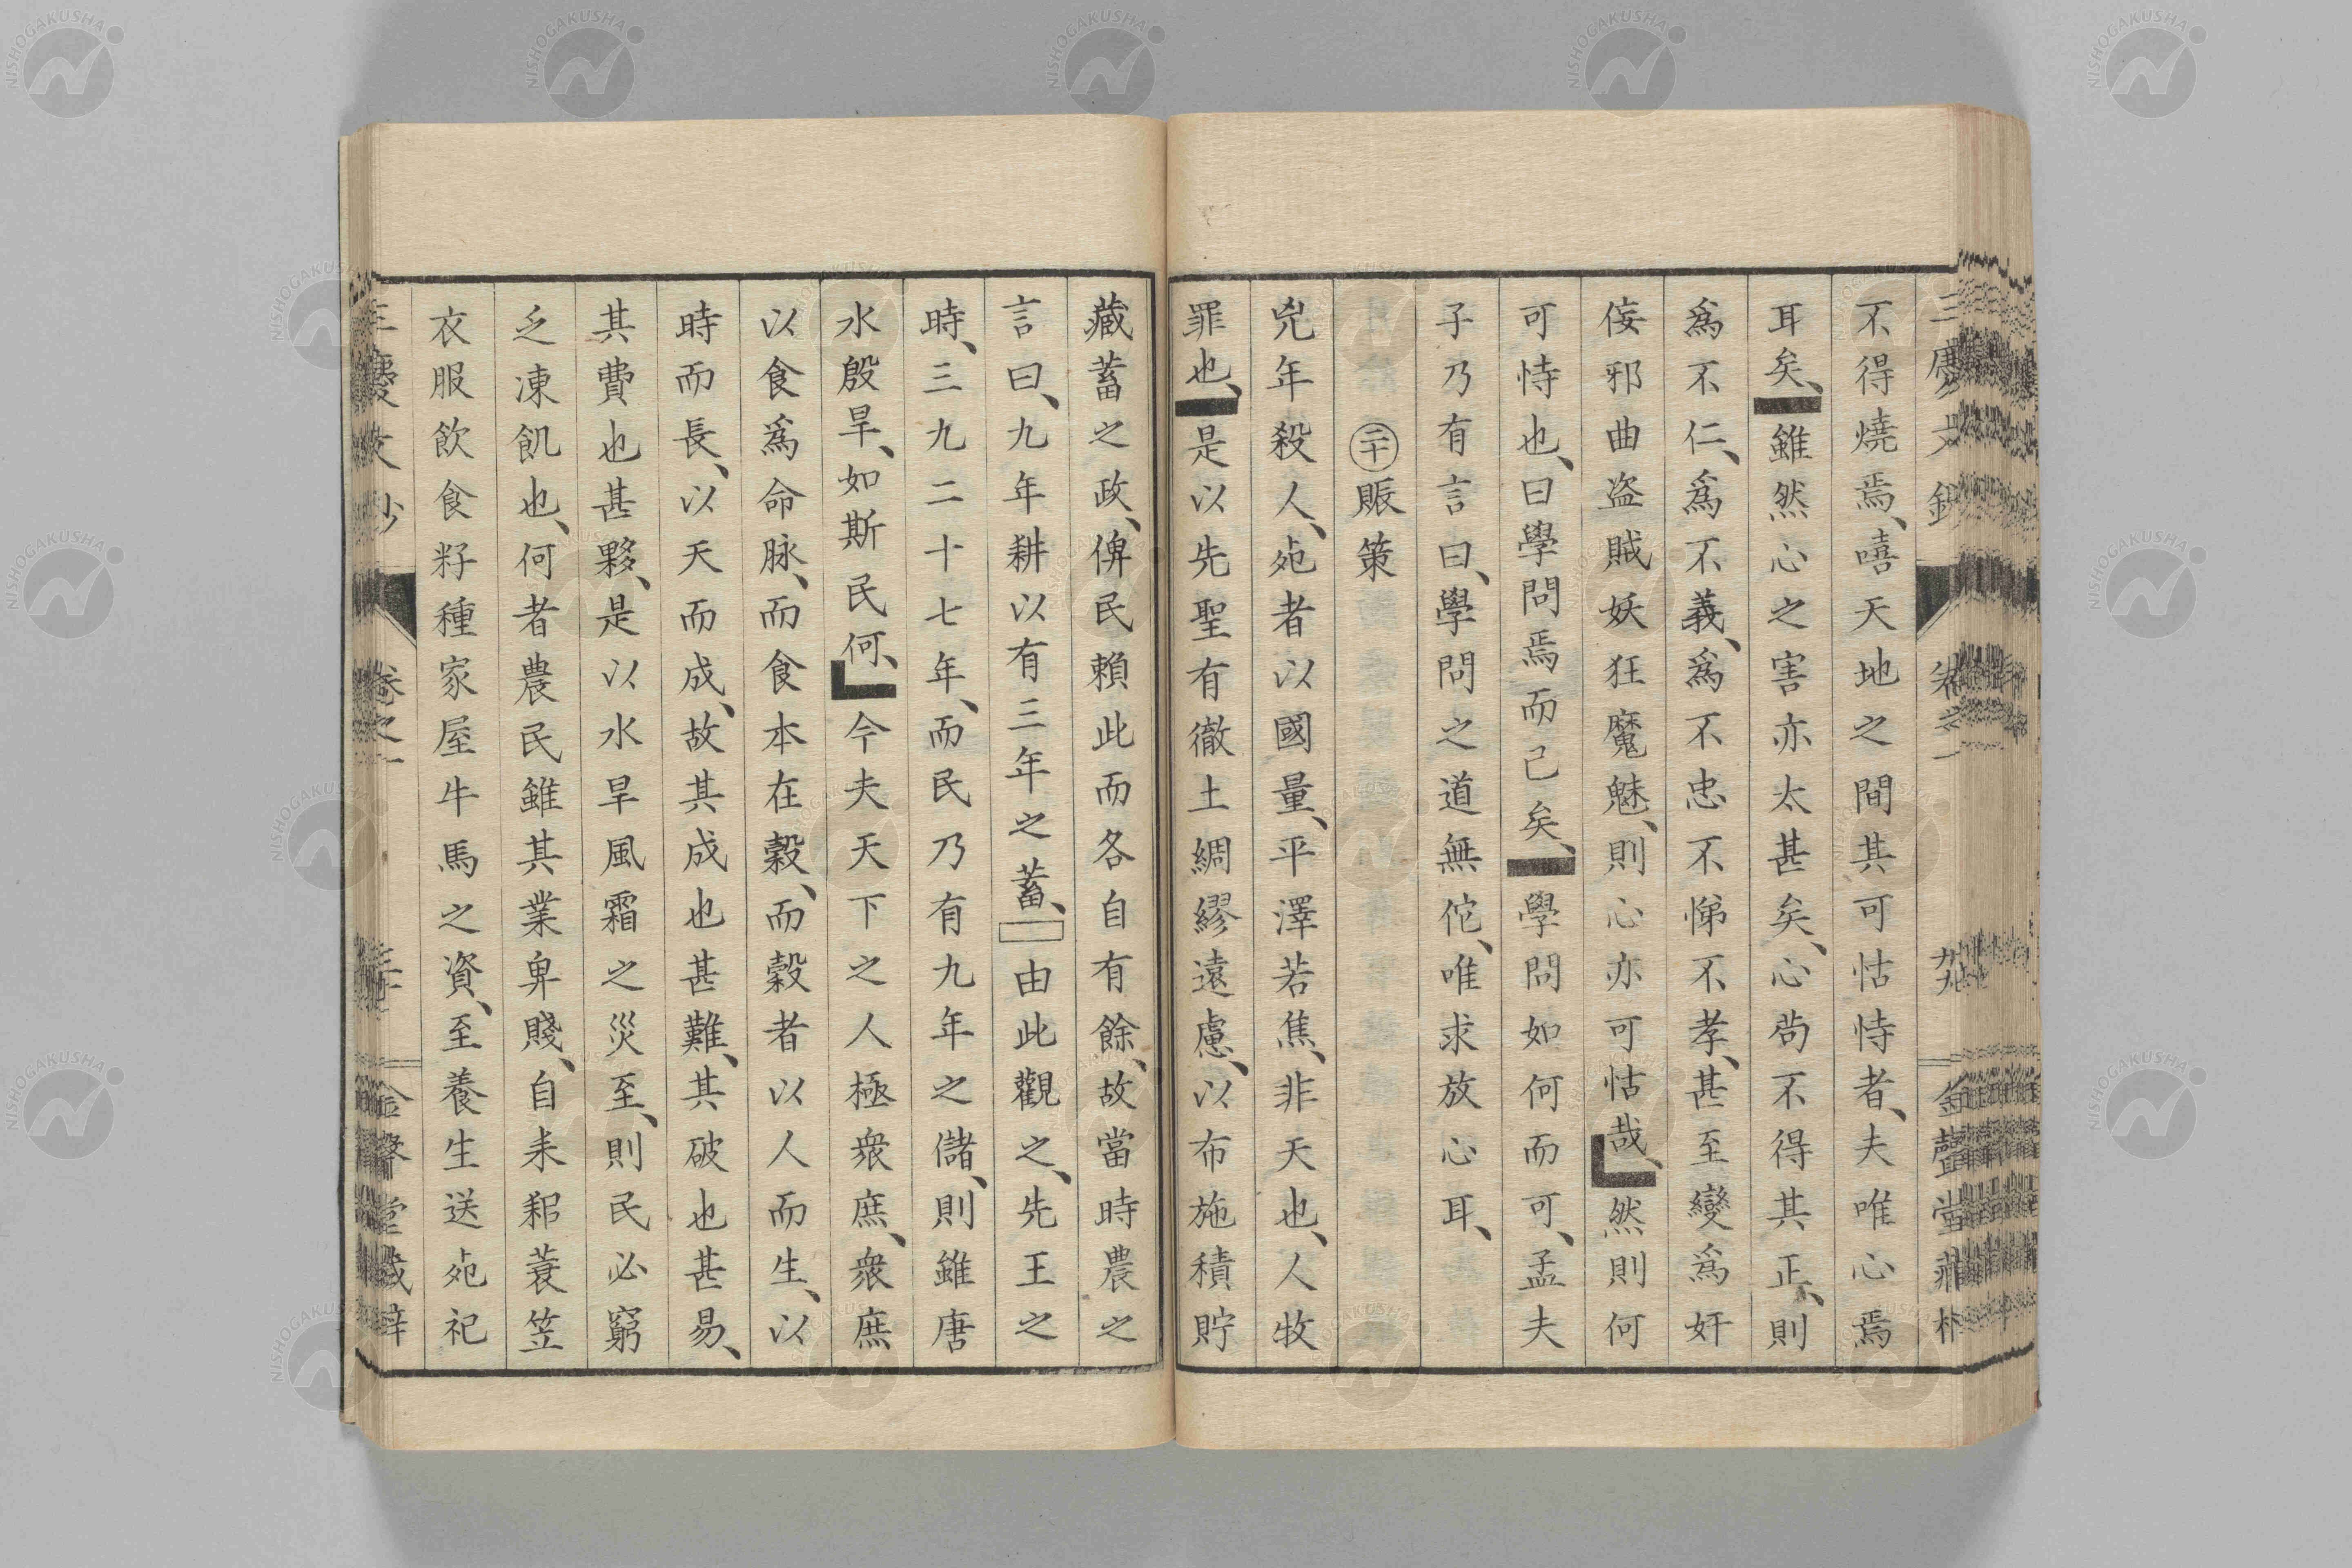 不得燒焉、嘻天地之間其可怙恃者、夫唯心焉
耳矣、雖然心之害亦太甚矣、心尚不得其正、則
爲不仁、爲不義、爲不忠不悌不孝、甚至變爲奸
佞邪曲盗賊妖狂魔魅、則心亦可怙哉、然則何
可恃也、曰學問焉而已矣、學問如何而可、孟夫
子乃有言曰、學問之道無佗、唯求放心耳、
㊁十賑策
兇年殺人、死者以國量、平澤若焦、非天也、人牧
罪也、是以先聖有徹土綢繆遠慮、以布施積貯
藏蓄之政、俾民賴此而各自有餘、故當時農之
言曰、九年耕以有三年之蓄、由此觀之、先王之
時、三九二十七年、而民乃有九年之儲、則雖唐
水殷旱、如斯民何、今夫天下之人極衆庶、衆庶
以食爲命脉、而食本在穀、而穀者以人而生、以
時而長、以天而成、故其成也甚難、其破也甚易、
其費也甚夥、是以水旱風霜之災至、則民必窮
乏凍飢也、何者農民雖其業卑賤、自耒耜蓑笠
衣服飲食籽種家屋牛馬之資、至養生送死祀